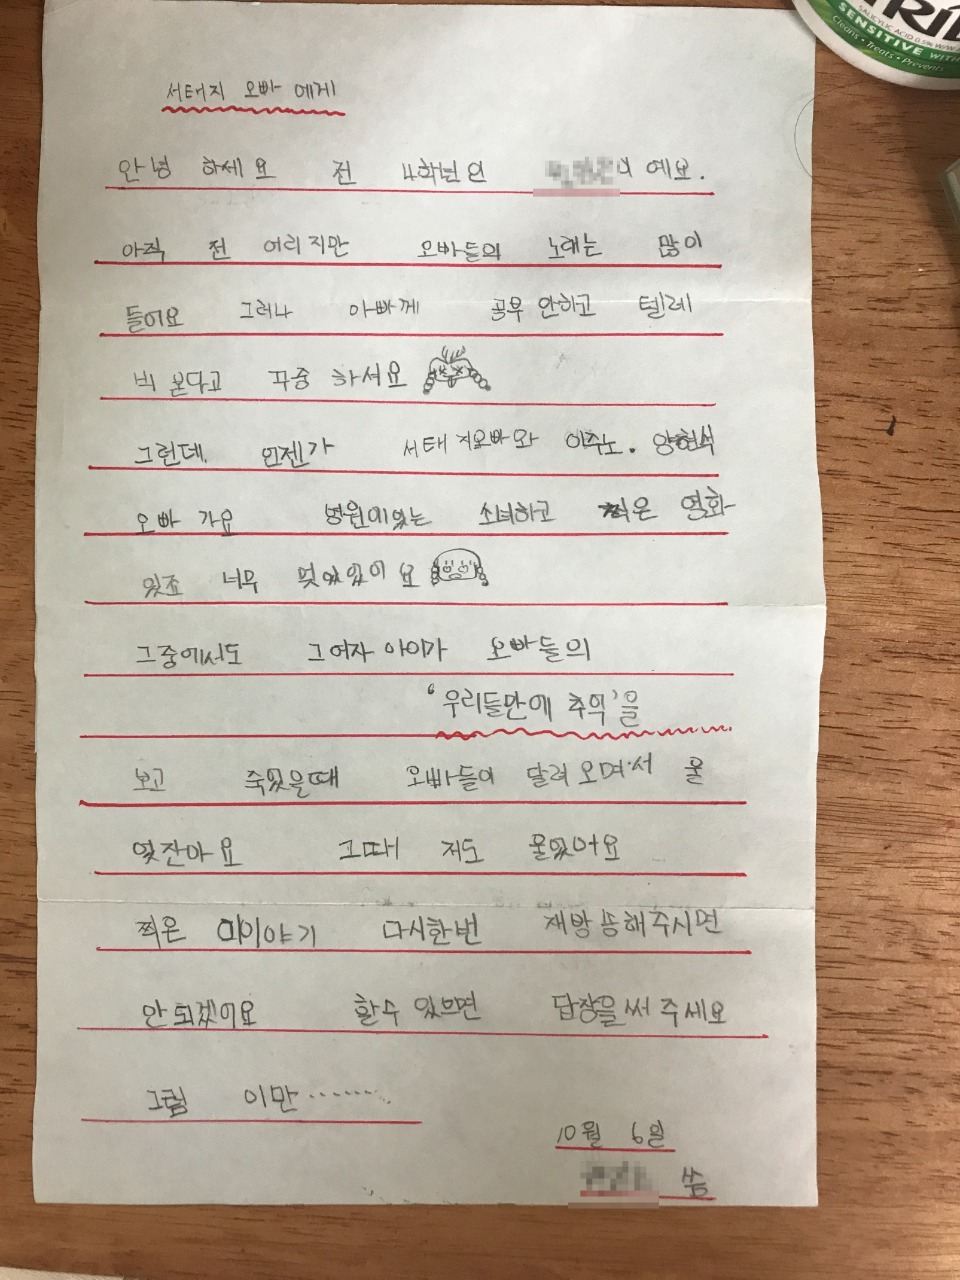 TRID
SALICYLIC ACID 0.5% W/W
SENSITIVE WITH
Cleans • Treats • Prevents
서태지 오빠 에게
안녕 하세요 전 4학년인 이 예요.
아직 전 어리지만 오빠들의 노래는 많이
들어요 그러나 아빠께 공부 안하고 텔레
비 본다고 꾸중 하셔요
그런데. 언젠가 서태지오빠와 이주노. 양현석
오빠 가요 병원에있는 소녀하고 찍은 영화
있죠 너무 멋있었어요
그중에서도 그여자 아이가 오빠들의
'우리들만에 추억'을
보고 죽었을때 오빠들이 달려오며서 울
었잔아요 그때 저도 울었어요
찍은 이야기 다시한번 재방송해주시면
안되겠어요 할수 있으면 답장을써 주세요
그럼 이만.......
10월 6일
씀